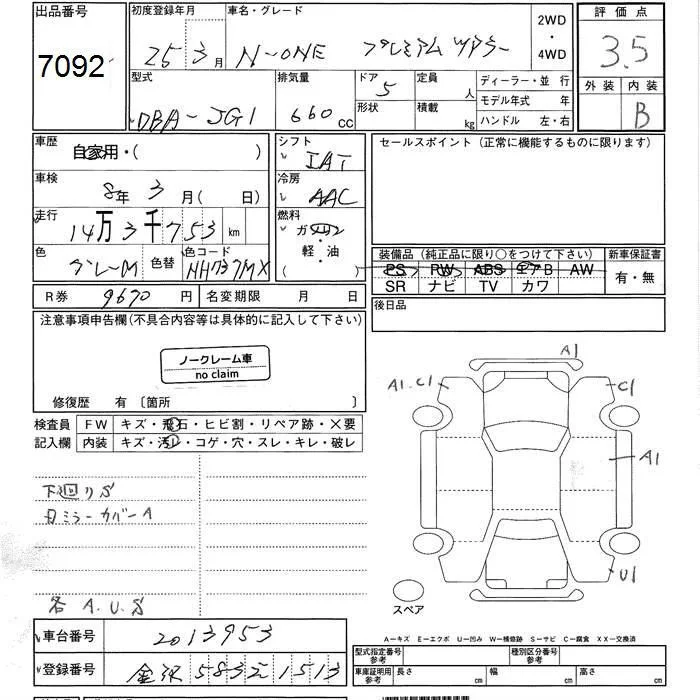 出品番号
7092
初度登録年月
25 3月
車名・グレード
N-ONE プレミアムツアラー
2WD
・
4WD
評価点
3.5
外装 内装
B
型式
DBA-JG1
排気量
660 cc
ドア
5
形状
定員
人
積載
kg
ディーラー・並行
モデル年式 年
ハンドル 左・右
車歴
自家用・( )
シフト
IAT
セールスポイント (正常に機能するものに限ります)
車検
8年 3月 ( 日)
冷房
AAC
走行
14万3千753 km
燃料
ガソリン
・
軽・油
( )
色
グレーM
色替
色コード
NH737MX
装備品 (純正品に限り○をつけて下さい)
新車保証書
PS PW ABS エアB AW
SR ナビ TV カワ
有・無
R券 9670円
名変期限 月 日
後日品
注意事項申告欄(不具合内容等は具体的に記入して下さい)
ノークレーム車
no claim
修復歴 有 〔箇所 〕
検査員
記入欄
FW キズ・飛石・ヒビ割・リペア跡・X要
内装 キズ・汚レ・コゲ・穴・スレ・キレ・破レ
A1
A1.C1
C1
A1
U1
下廻りS
ミラーカバーA
各A.U.S
スペア
A—キズ E—エクボ U—凹み W—補修跡 S—サビ C—腐食 XX—交換済
車台番号
2013953
登録番号
金沢 583 え 1513
型式指定番号
参考
種別区分番号
参考
車庫証明用
参考
長さ cm
幅 cm
高さ cm